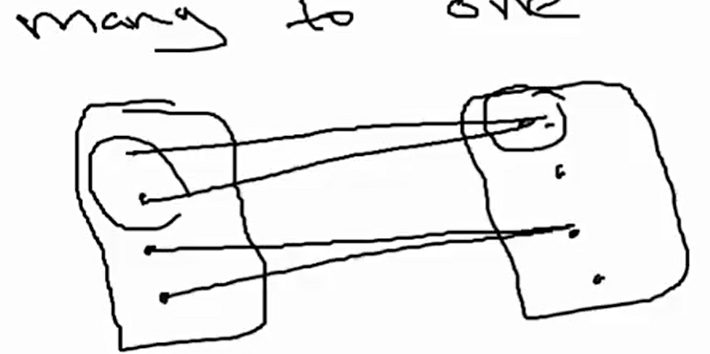 many to one